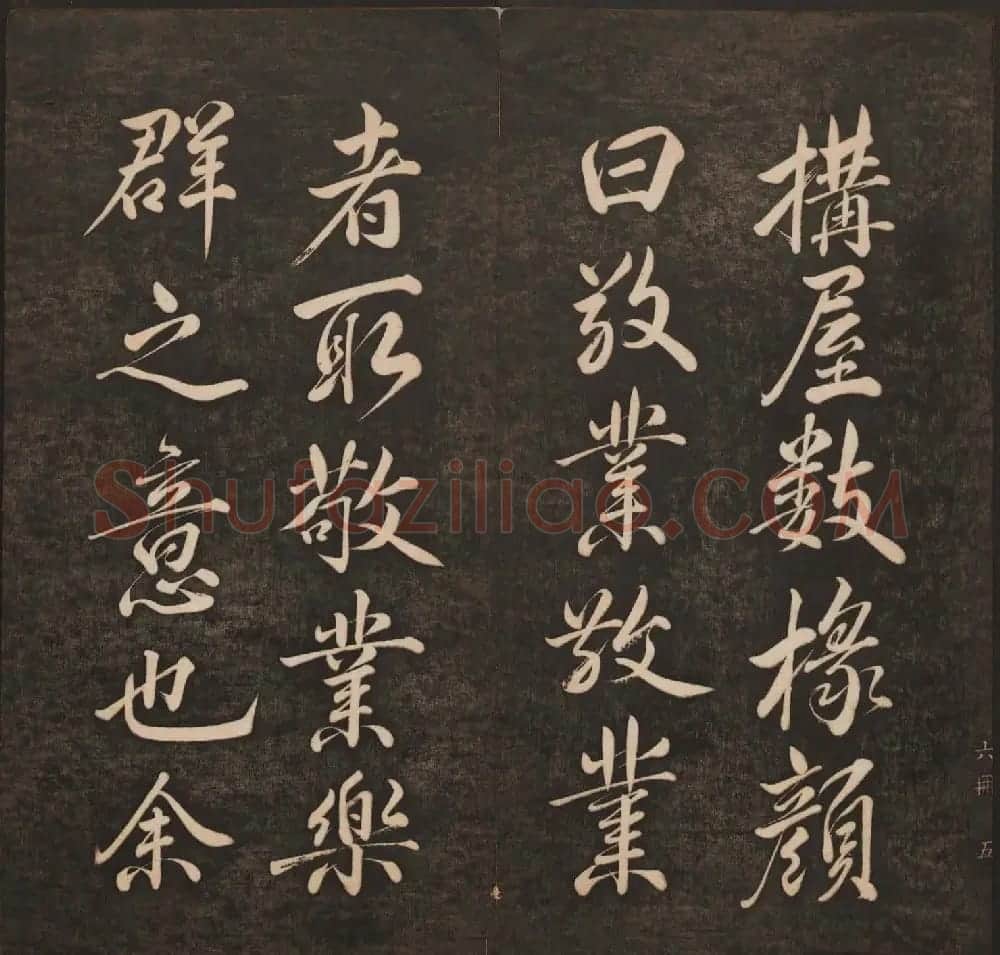 搆屋數椽顔
曰敬業敬業
者取敬業樂
群之意也余
六冊 五
Shufaziliao.com